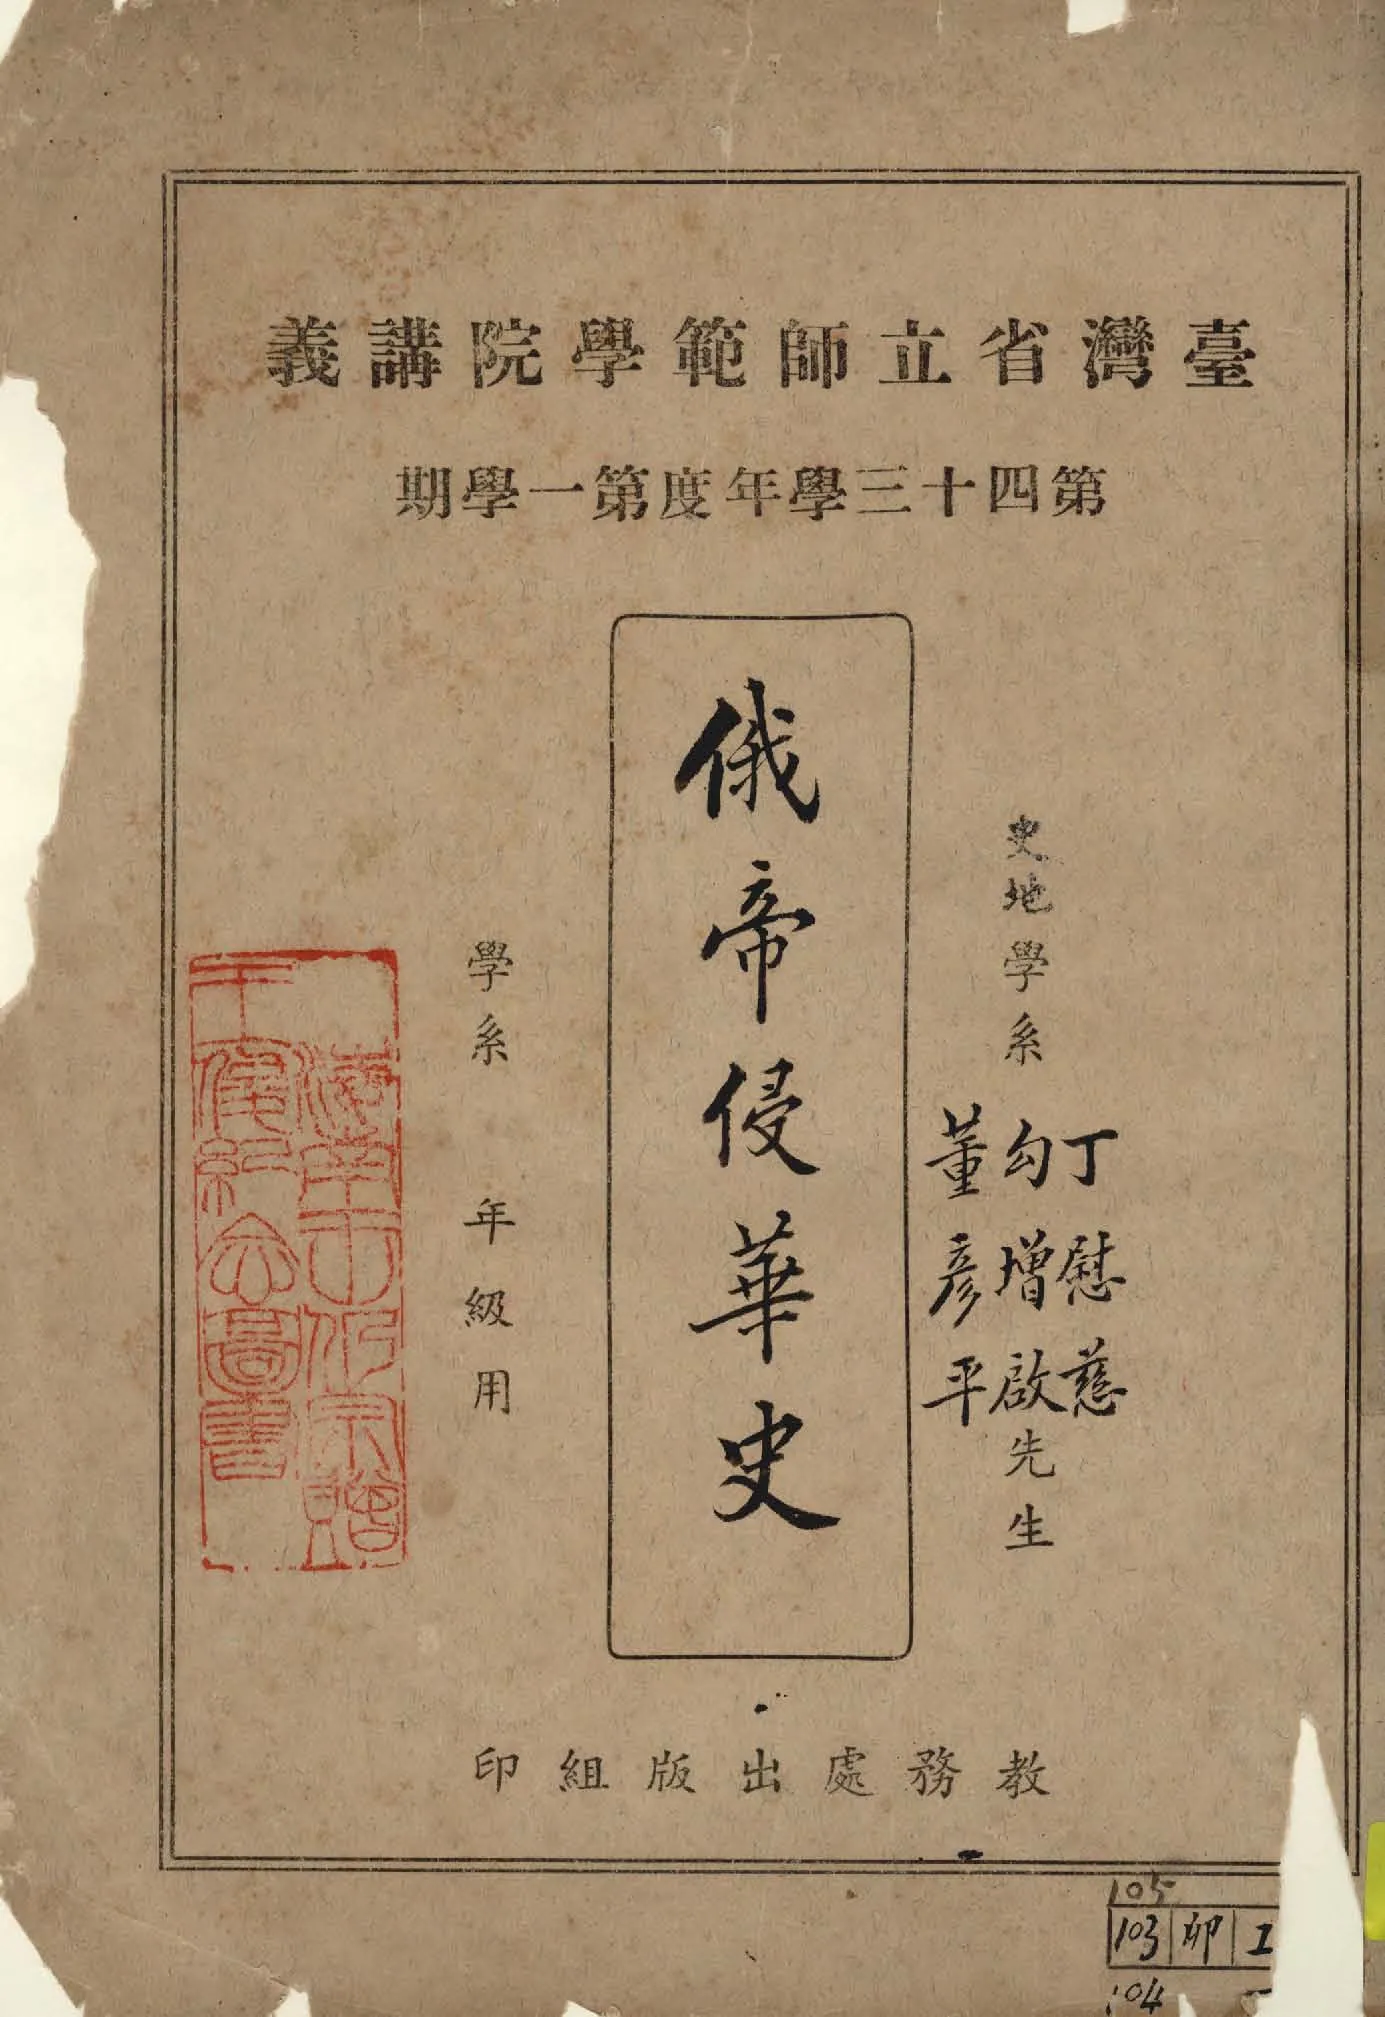 臺灣省立師範學院講義
第四十三學年度第一學期
史地學系
丁慰慈
勾增啟
董彥平
先生
俄帝侵華史
學系 年級用
圖書
教務處出版組印
105
103 卯
104